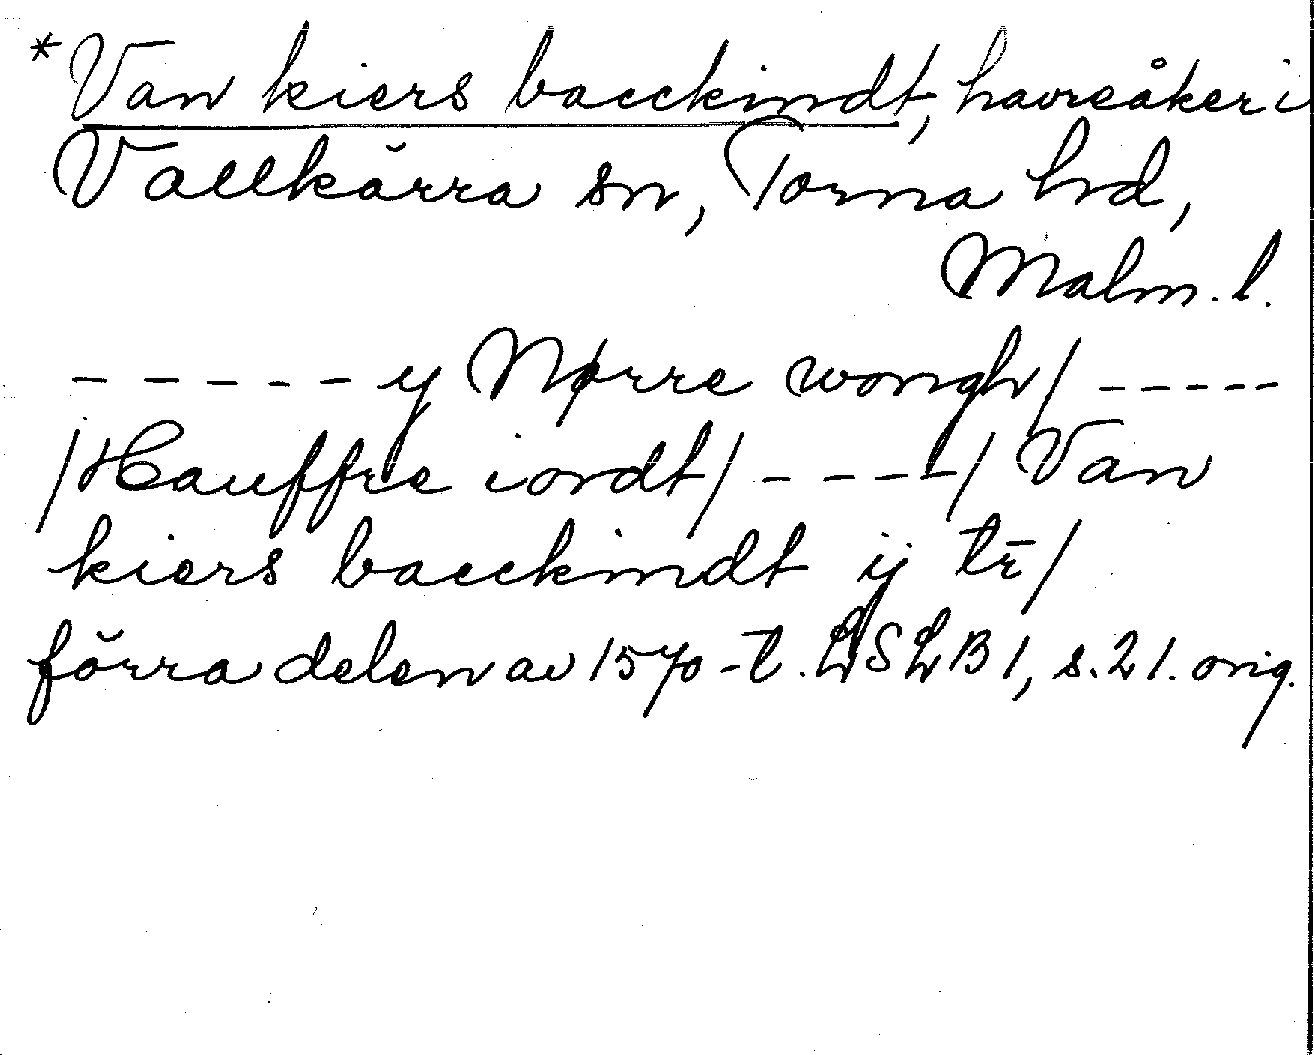 *Van kiers bacckindt, havreåker i
Vallkärra sn, Torna hd,
Malm. l.
- - - - - - y Nørre wongh/ - - - - -
/Hauffre iordt/ - - - - -/ Van
kiers bacckindt ij tr̄/
förra delen av 1570-t. LSLB 1, s. 21. orig.